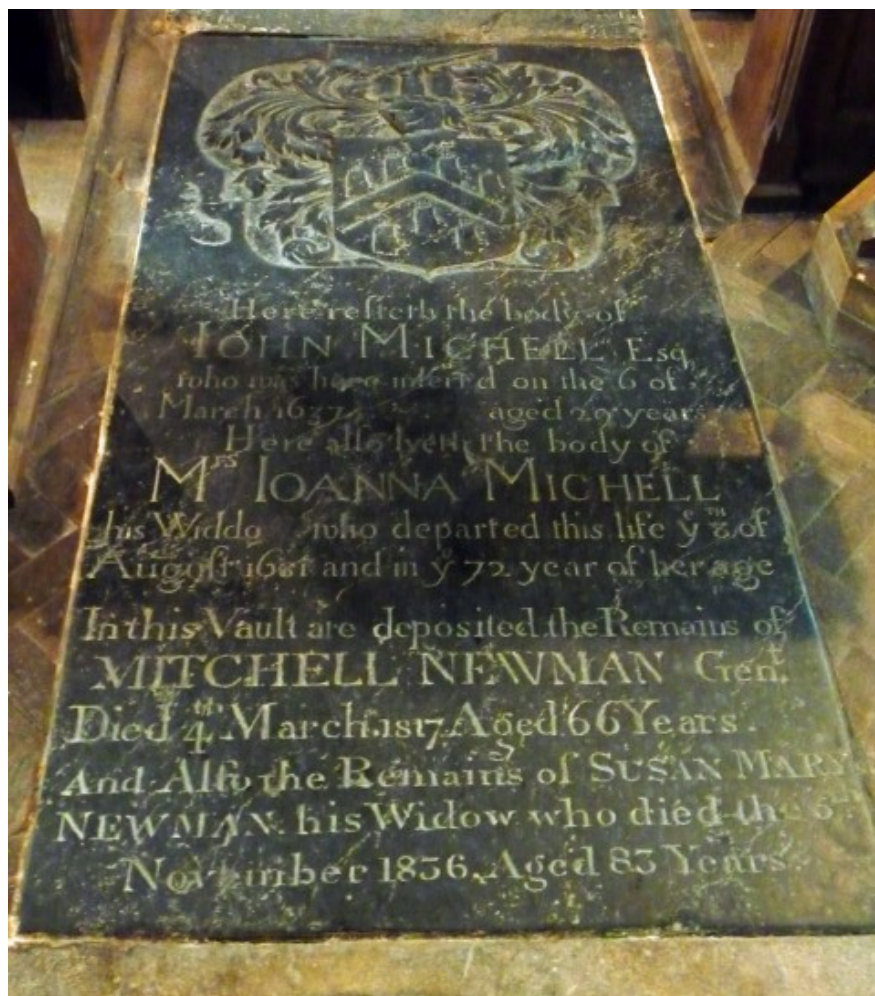 Here resteth the body of
IOHN MICHELL Esq
who was here interr'd on the 6 of
March 1637 aged 29 years
Here also lyeth the body of
Mrs IOANNA MICHELL
his Widdo who departed this life ye 8th of
August 1681 and in ye 72 year of her age
In this Vault are deposited the Remains of
MITCHELL NEWMAN Gent.
Died 4th March 1817 Aged 66 Years.
And Also the Remains of SUSAN MARY
NEWMAN his Widow who died the
November 1836 Aged 83 Years.